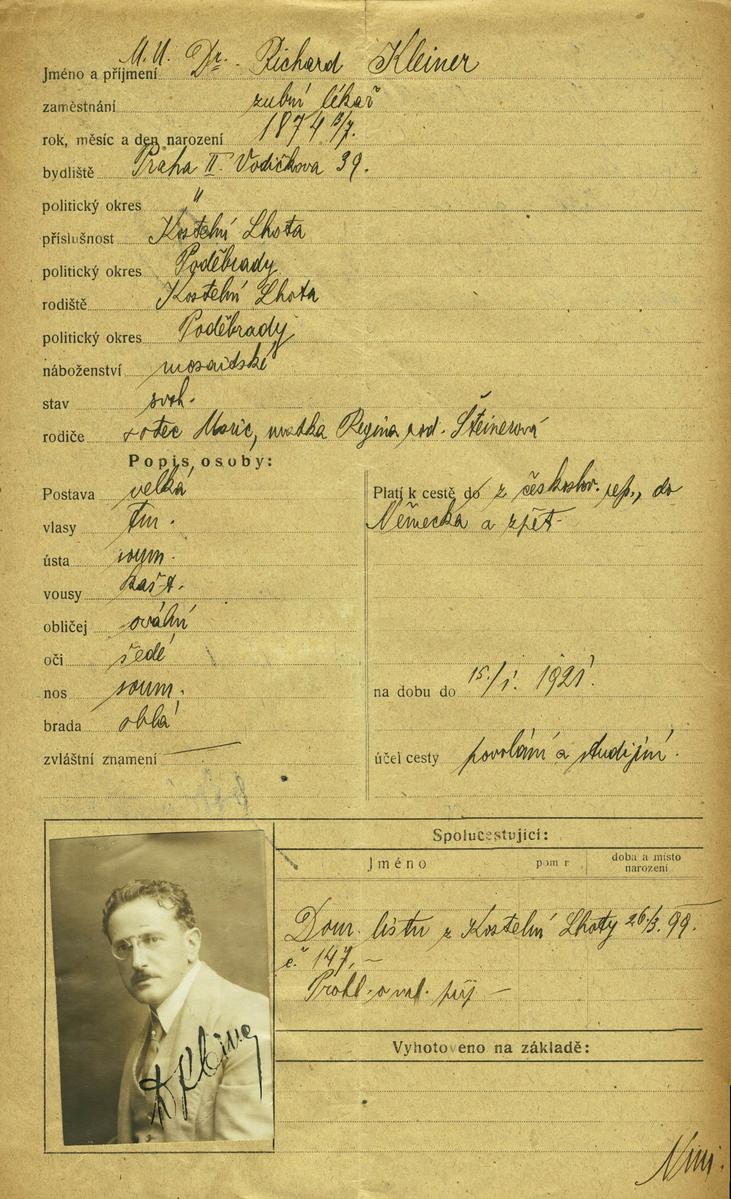 Jméno a příjmení M. U. Dr. Richard Kleiner
zaměstnání zubní lékař
rok, měsíc a den narození 1874 3/7.
bydliště Praha II. Vodičkova 39.
politický okres "
příslušnost Kostelní Lhota
politický okres Poděbrady
rodiště Kostelní Lhota
politický okres Poděbrady
náboženství mosaidské
stav svob.
rodiče otec Moric, matka Regina rod. Šteinerová
Popis osoby:
Postava velká
vlasy tm.
ústa soum.
vousy kašt.
obličej ovální
oči šedé
nos soum.
brada oblá
zvláštní znamení —
Platí k cestě do z českoslov. rep., do
Německa a zpět
na dobu do 15./I. 1921.
účel cesty povolání a studijní.
Spolucestující:
Jméno pom r doba a místo narození
Dom. listu z Kostelní Lhoty 26/3. 99.
č. 147. —
Prohl. o nal. příj —
Vyhotoveno na základě: